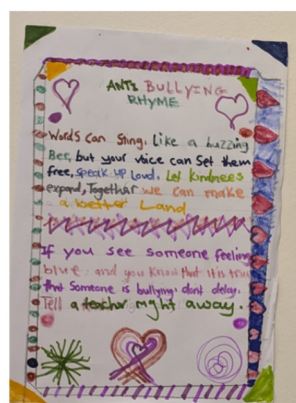 ANTI BULLYING
RHYME
Words Can Sting. Like a buzzing
Bee, but your voice can Set them
free, speak up Loud. Let kindnees
expand, Together we can make
a better Land
If you see someone feeling
blue, and you know that it is true
that Someone is bullying, dont delay.
Tell a teacher right away.